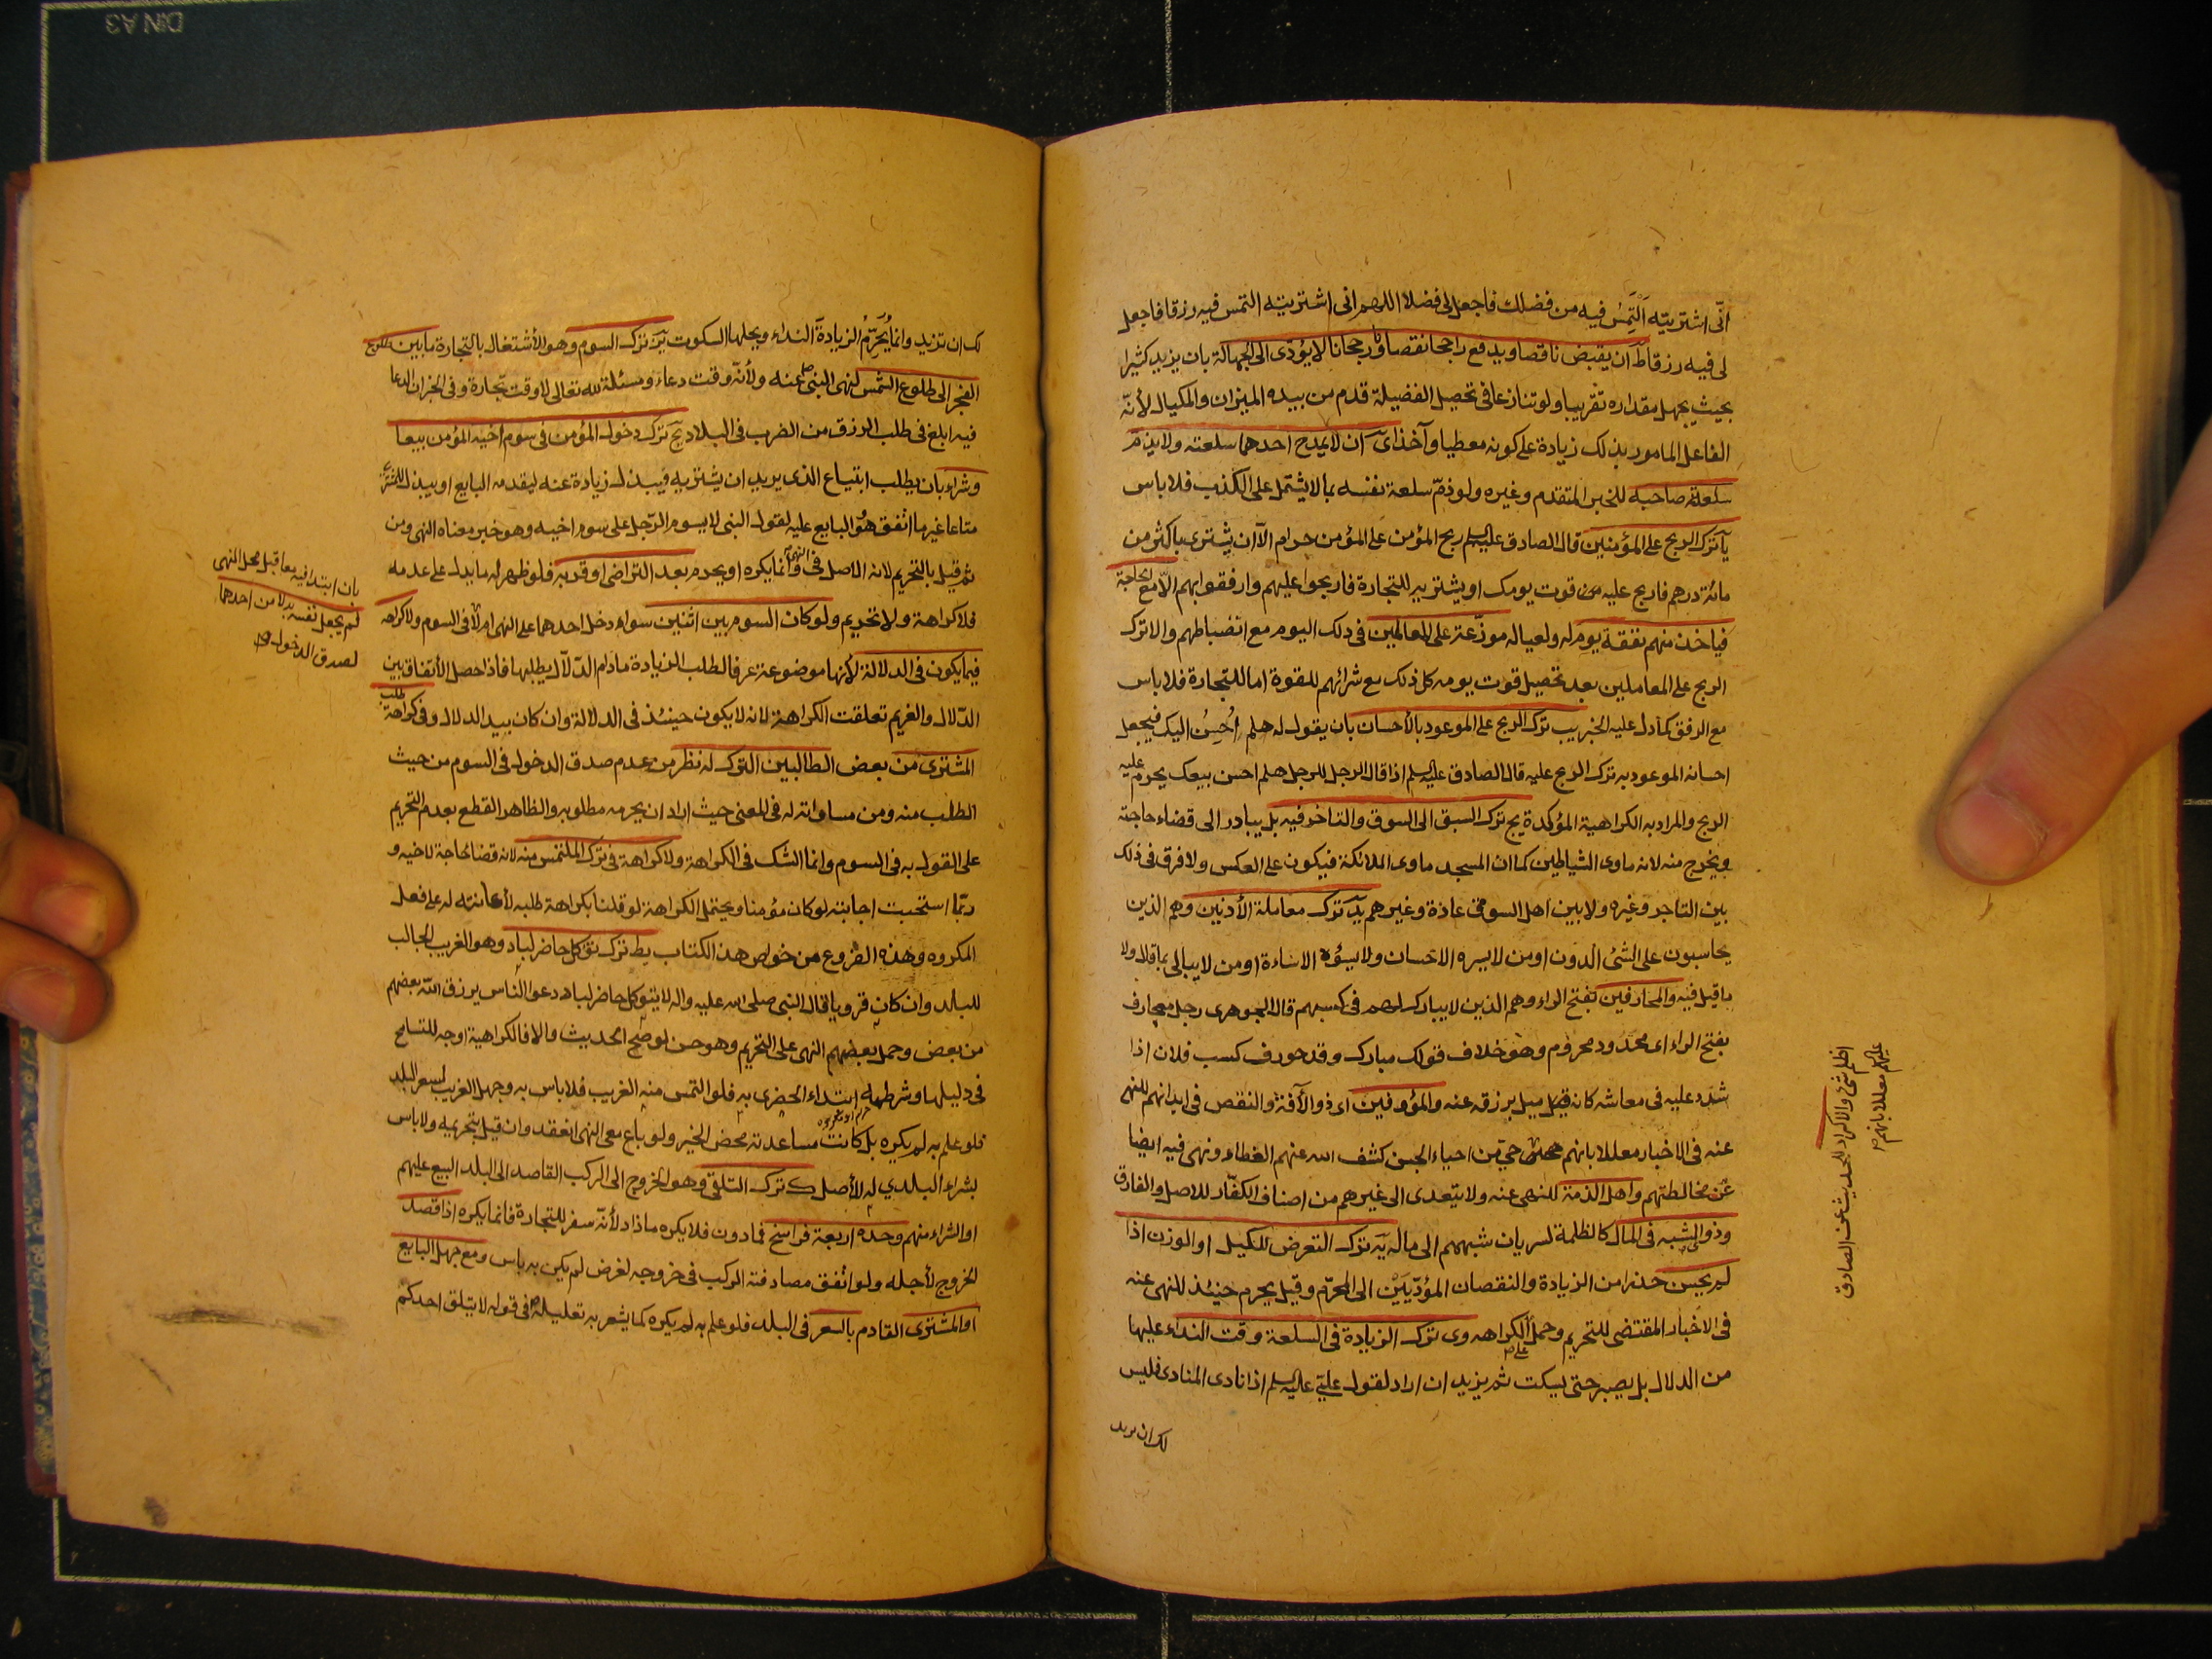 انّى اشتريته اَلتَمِسُ فيه من فضلك فاجعل لى فضلا اللهم انى اشتريته التمس فيه رزقا فاجعل
لى فيه رزقا ط ان يقبض ناقصا ويدفع راجحا نقصا ورجحانا لا يؤدّى الى الجهالة بان يزيد كثيرا
بحيث يجهل مقداره تقريبا ولو تنازعا فى تحصيل الفضيلة قدم من بيده الميزان والمكيال لأنّه
الفاعل المامور بذلك زيادة على كونه معطيا وآخذا ى ان لا يمدح احدهما سلعته ولا يذم
سلعة صاحبه للخبر المتقدم وغيره ولو ذمّ سلعة نفسه بما لا يشتمل على الكذب فلا باس
يا ترك الربح على المؤمنين قال الصادق عليه السلم ربح المؤمن على المؤمن حرام الّا ان يشترى باكثر من
مائة درهم فاربح عليه من قوت يومك او يشتريه للتجارة فاربحوا عليهم وارفقوا بهم الّا مع الحاجة
فياخذ منهم نفقة يوم له ولعياله موزّعة على المعاملين فى ذلك اليوم مع انضباطهم والا ترك
الربح على المعاملين بعد تحصيل قوت يومه كل ذلك مع شرائهم للقوة اما للتجارة فلا باس
مع الرفق كما دل عليه الخبر يب ترك الربح على الموعود بالأحسان بان يقول له هلم اُحسِنُ اليك فيجعل
احسانه الموعود به ترك الربح عليه قال الصادق عليه السلم اذا قال الرجل للرجل هلم احسن بيعك يحرم عليه
الربح والمراد به الكراهية المؤكدة يج ترك السبق الى السوق والتاخر فيه بل يبادر الى قضاء حاجته
ويخرج منه لانه ماوى الشياطين كما ان المسجد ماوى الملائكة فيكون على العكس ولا فرق فى ذلك
بين التاجر وغيره ولا بين اهل السوق عادة وغيرهم يد ترك معاملة الأدنين وهم الذين
يحاسبون على الشئ الدون او من لا يسره الاحسان ولا يسؤه الاساءة او من لا يبالى بما قال ولا
ما قيل فيه والمحارفين بفتح الراء وهم الذين لا يبارك لهم فى كسبهم قال الجوهرى رجل محارف
بفتح الراء اى محدود محروم وهو خلاف قولك مبارك وقد حورف كسب فلان اذا
شدد عليه فى معاشه كانه ميل برزقه عنه والمؤوفين اى ذو الآفة والنقص فى ابدانهم للنهى
عنه فى الاخبار معللا بانهم حى من احياء الجن كشف الله عنهم الغطاء ونهى فيه ايضا
عن مخالطتهم واهل الذمة للنهى عنه ولا يتعدى الى غيرهم من اصناف الكفّار للاصل والفارق
وذو الشبهة فى المال كالظلمة لسريان شبههم الى ماله يه ترك التعرض للكيل او الوزن اذا
لم يحسن حذرا من الزيادة والنقصان المؤدّيَيْن الى المحرّم وقيل يحرم حينئذ للنهى عنه
فى الاخبار المقتضى للتحريم وحمل على الكراهه وى ترك الزيادة فى السلعة وقت النداء عليها
من الدلال بل يصبر حتى يسكت ثم يزيد ان اراد لقول علىّ عليه السلم اذا نادى المنادى فليس
لك ان تزيد
اظلم شئ والاكراد للحديث عن الصادق
عليهم معللا بانهم
لك ان تزيد وانما يُحَرِّمُ الزيادةَ النداء ويحلها السكوت يز ترك السوم وهو الأشتغال بالتجارة ما بين طلوع
الفجر الى طلوع الشمس لنهى النبى ص عنه ولأنّه وقت دعاء ومسئلة لله تعالى لا وقت تجارة وفى الخبر ان الدعا
فيه ابلغ فى طلب الرزق من الضرب فى البلاد يح ترك دخول المؤمن فى سوم اخيه المؤمن بيعا
وشراء بان يطلب ابتياع الذى يريد ان يشتريه فيبذل زيادة عنه ليقدمه البايع او يبذل للمشترى
متاعا غير ما اتفق هو والبايع عليه لقول النبى لا يسوم الرّجل على سوم اخيه وهو خبر معناه النهى ومن
ثم قيل بالتحريم لانه الاصل فى النهى وانما يكره او يحرم بعد التراضى او قربه فلو ظهر له ما يدل على عدمه
فلا كراهة ولا تحريم ولو كان السوم بين اثنين سواء دخل احدهما على النهى ام لا فى السوم ولا كراهه
فيما يكون فى الدلالة لأنها موضوعة عرفا لطلب الزيادة ما دام الدّلّال يطلبها فاذا حصل الأتفاق بين
الدّلال والغريم تعلقت الكراهة لانه لا يكون حينئذ فى الدلالة وان كان بيد الدلال وفى كراهة طلب
المشترى من بعض الطالبين الترك له نظر من عدم صدق الدخول فى السوم من حيث
الطلب منه ومن مساواته له فى المعنى حيث اراد ان يحرمه مطلوبه والظاهر القطع بعدم التحريم
على القول به فى السوم وانما الشك فى الكراهة ولا كراهة فى ترك الملتمس منه لانه قضا لحاجة لاخيه و
ربّما استحبت اجابته لو كان مؤمنا ويحتمل الكراهة لو قلنا بكراهة طلبه لأعانته له على فعل
المكروه وهذه الفروع من خواص هذا الكتاب يط ترك توكل حاضر لباد وهو الغريب الجالب
للبلد وان كان قرويا قال النبى صلى الله عليه واله لا يتوكل حاضر لباد دعوا الناس يرزق الله بعضهم
من بعض وحمل بعضهم النهى على التحريم وهو حسن لو صح الحديث والا فالكراهية اوجه للتسامح
فى دليلها وشرطه ابتداء الحضرى به فلو التمس منه الغريب فلا باس به وجهل الغريب بسعر البلد
فلو علم به لم يكره بل كانت مساعدته محض الخير ولو باع مع النهى انعقد وان قيل بتحريمه ولا باس
بشراء البلدي له للأصل ك ترك التلقى وهو الخروج الى الركب القاصد الى البلد البيع عليهم
او الشراء منهم وحده اربعة فراسخ فما دون فلا يكره ما زاد لأنّه سفر للتجارة فانما يكره اذا قصد
الخروج لأجله ولو اتفق مصادفة الركب فى خروجه لغرض لم يكن به باس ومع جهل البايع
او المشترى القادم بالسعر فى البلد فلو علم به لم يكره كما يشعر به تعليله فى قوله لا يتلق احدكم
بان ابتدا فيه معا قبل محل النهى
لم يجعل نفسه بدلا من احدهما
لصدق الدخول